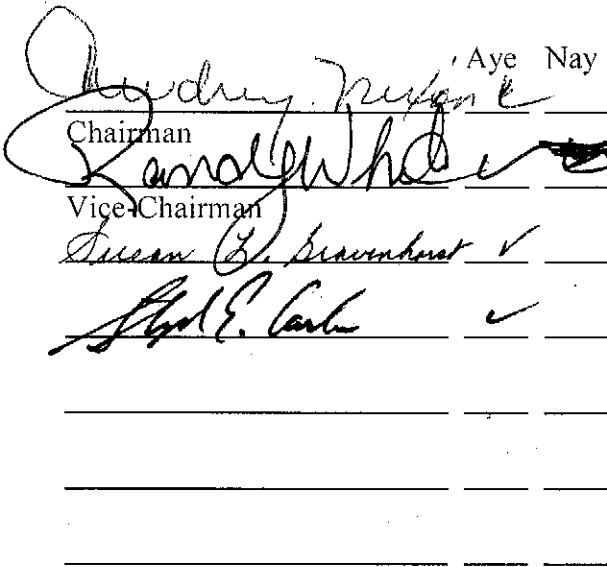 Aye Nay
Audrey Nixon ✓
Chairman
Randy Wh ✓
Vice-Chairman
Susan L. Gravenhorst ✓
E. Carter ✓